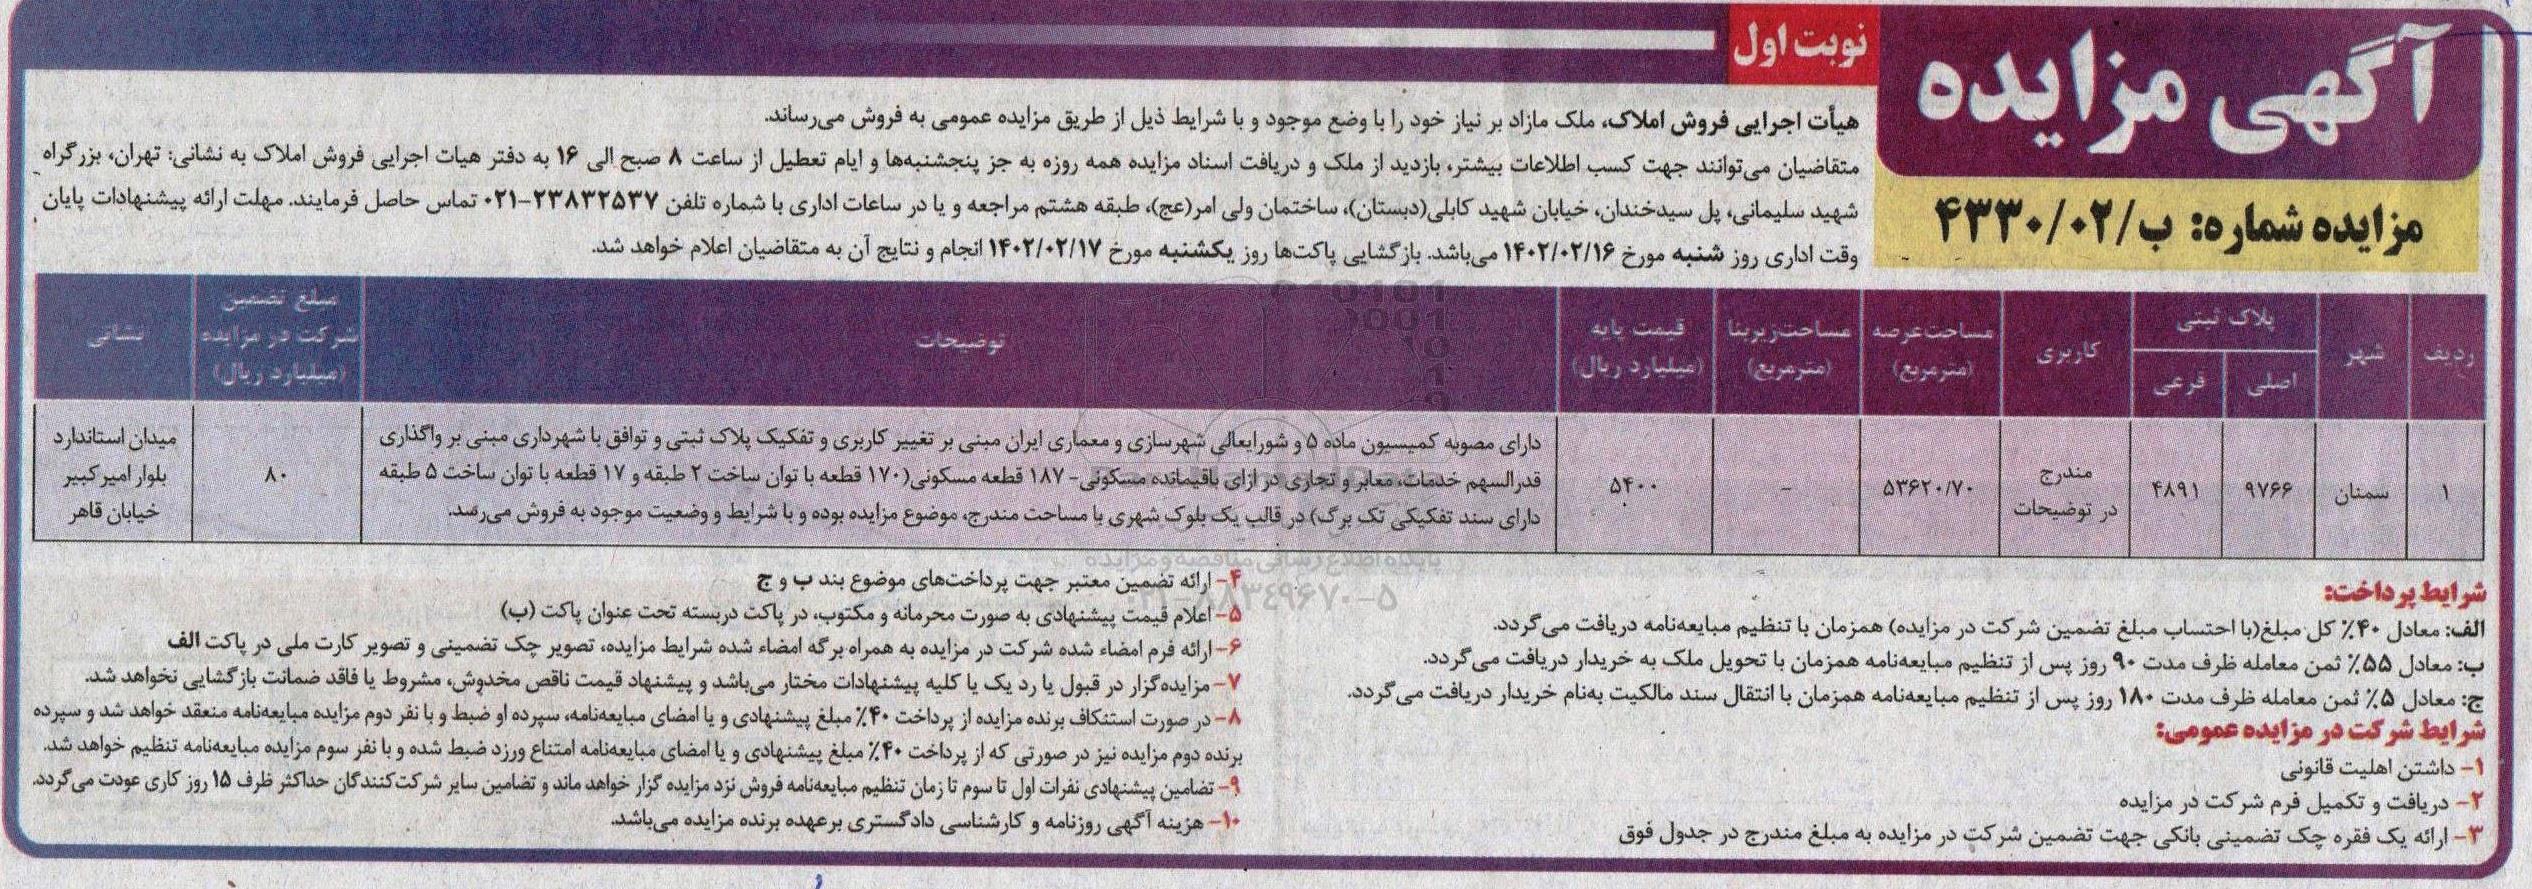 آگهی مزایده
نوبت اول
مزایده شماره: ب/۴۳۳۰/۰۲
هیأت اجرایی فروش املاک، ملک مازاد بر نیاز خود را با وضع موجود و با شرایط ذیل از طریق مزایده عمومی به فروش می‌رساند.
متقاضیان می‌توانند جهت کسب اطلاعات بیشتر، بازدید از ملک و دریافت اسناد مزایده همه روزه به جز پنجشنبه‌ها و ایام تعطیل از ساعت ۸ صبح الی ۱۶ به دفتر هیات اجرایی فروش املاک به نشانی: تهران، بزرگراه
شهید سلیمانی، پل سیدخندان، خیابان شهید کابلی(دبستان)، ساختمان ولی امر(عج)، طبقه هشتم مراجعه و یا در ساعات اداری با شماره تلفن ۲۳۸۳۲۵۳۷-۰۲۱ تماس حاصل فرمایند. مهلت ارائه پیشنهادات پایان
وقت اداری روز شنبه مورخ ۱۴۰۲/۰۲/۱۶ می‌باشد. بازگشایی پاکت‌ها روز یکشنبه مورخ ۱۴۰۲/۰۲/۱۷ انجام و نتایج آن به متقاضیان اعلام خواهد شد.
ردیف
شهر
پلاک ثبتی
اصلی
فرعی
کاربری
مساحت عرصه
(مترمربع)
مساحت زیربنا
(مترمربع)
قیمت پایه
(میلیارد ریال)
توضیحات
مبلغ تضمین
شرکت در مزایده
(میلیارد ریال)
نشانی
۱
سمنان
۹۷۶۶
۴۸۹۱
مندرج
در توضیحات
۵۳۶۲۰/۷۰
-
۵۴۰۰
دارای مصوبه کمیسیون ماده ۵ و شورایعالی شهرسازی و معماری ایران مبنی بر تغییر کاربری و تفکیک پلاک ثبتی و توافق با شهرداری مبنی بر واگذاری
قدرالسهم خدمات، معابر و تجاری در ازای باقیمانده مسکونی- ۱۸۷ قطعه مسکونی(۱۷۰ قطعه با توان ساخت ۲ طبقه و ۱۷ قطعه با توان ساخت ۵ طبقه
دارای سند تفکیکی تک برگ) در قالب یک بلوک شهری با مساحت مندرج، موضوع مزایده بوده و با شرایط و وضعیت موجود به فروش می‌رسد.
۸۰
میدان استاندارد
بلوار امیرکبیر
خیابان قاهر
شرایط پرداخت:
الف: معادل ۴۰٪ کل مبلغ(با احتساب مبلغ تضمین شرکت در مزایده) همزمان با تنظیم مبایعه‌نامه دریافت می‌گردد.
ب: معادل ۵۵٪ ثمن معامله ظرف مدت ۹۰ روز پس از تنظیم مبایعه‌نامه همزمان با تحویل ملک به خریدار دریافت می‌گردد.
ج: معادل ۵٪ ثمن معامله ظرف مدت ۱۸۰ روز پس از تنظیم مبایعه‌نامه همزمان با انتقال سند مالکیت به‌نام خریدار دریافت می‌گردد.
شرایط شرکت در مزایده عمومی:
۱- داشتن اهلیت قانونی
۲- دریافت و تکمیل فرم شرکت در مزایده
۳- ارائه یک فقره چک تضمینی بانکی جهت تضمین شرکت در مزایده به مبلغ مندرج در جدول فوق
۴- ارائه تضمین معتبر جهت پرداخت‌های موضوع بند ب و ج
۵- اعلام قیمت پیشنهادی به صورت محرمانه و مکتوب، در پاکت دربسته تحت عنوان پاکت (ب)
۶- ارائه فرم امضاء شده شرکت در مزایده به همراه برگه امضاء شده شرایط مزایده، تصویر چک تضمینی و تصویر کارت ملی در پاکت الف
۷- مزایده‌گزار در قبول یا رد یک یا کلیه پیشنهادات مختار می‌باشد و پیشنهاد قیمت ناقص مخدوش، مشروط یا فاقد ضمانت بازگشایی نخواهد شد.
۸- در صورت استنکاف برنده مزایده از پرداخت ۴۰٪ مبلغ پیشنهادی و یا امضای مبایعه‌نامه، سپرده او ضبط و با نفر دوم مزایده مبایعه‌نامه منعقد خواهد شد و سپرده
برنده دوم مزایده نیز در صورتی که از پرداخت ۴۰٪ مبلغ پیشنهادی و یا امضای مبایعه‌نامه امتناع ورزد ضبط شده و با نفر سوم مزایده مبایعه‌نامه تنظیم خواهد شد.
۹- تضامین پیشنهادی نفرات اول تا سوم تا زمان تنظیم مبایعه‌نامه فروش نزد مزایده گزار خواهد ماند و تضامین سایر شرکت‌کنندگان حداکثر ظرف ۱۵ روز کاری عودت می‌گردد.
۱۰- هزینه آگهی روزنامه و کارشناسی دادگستری برعهده برنده مزایده می‌باشد.
پایگاه اطلاع رسانی مناقصه و مزایده
۰۲۱-۸۸۳۴۹۶۷۰-۵